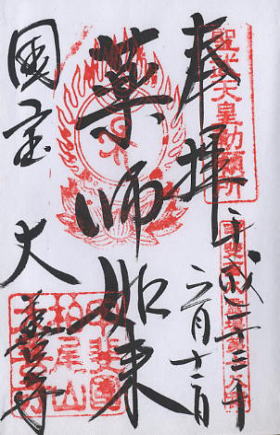 奉拝
平成二十三年
六月十二日
薬師如来
国宝 大善寺
聖武天皇勅願所
甲斐國
柏尾山